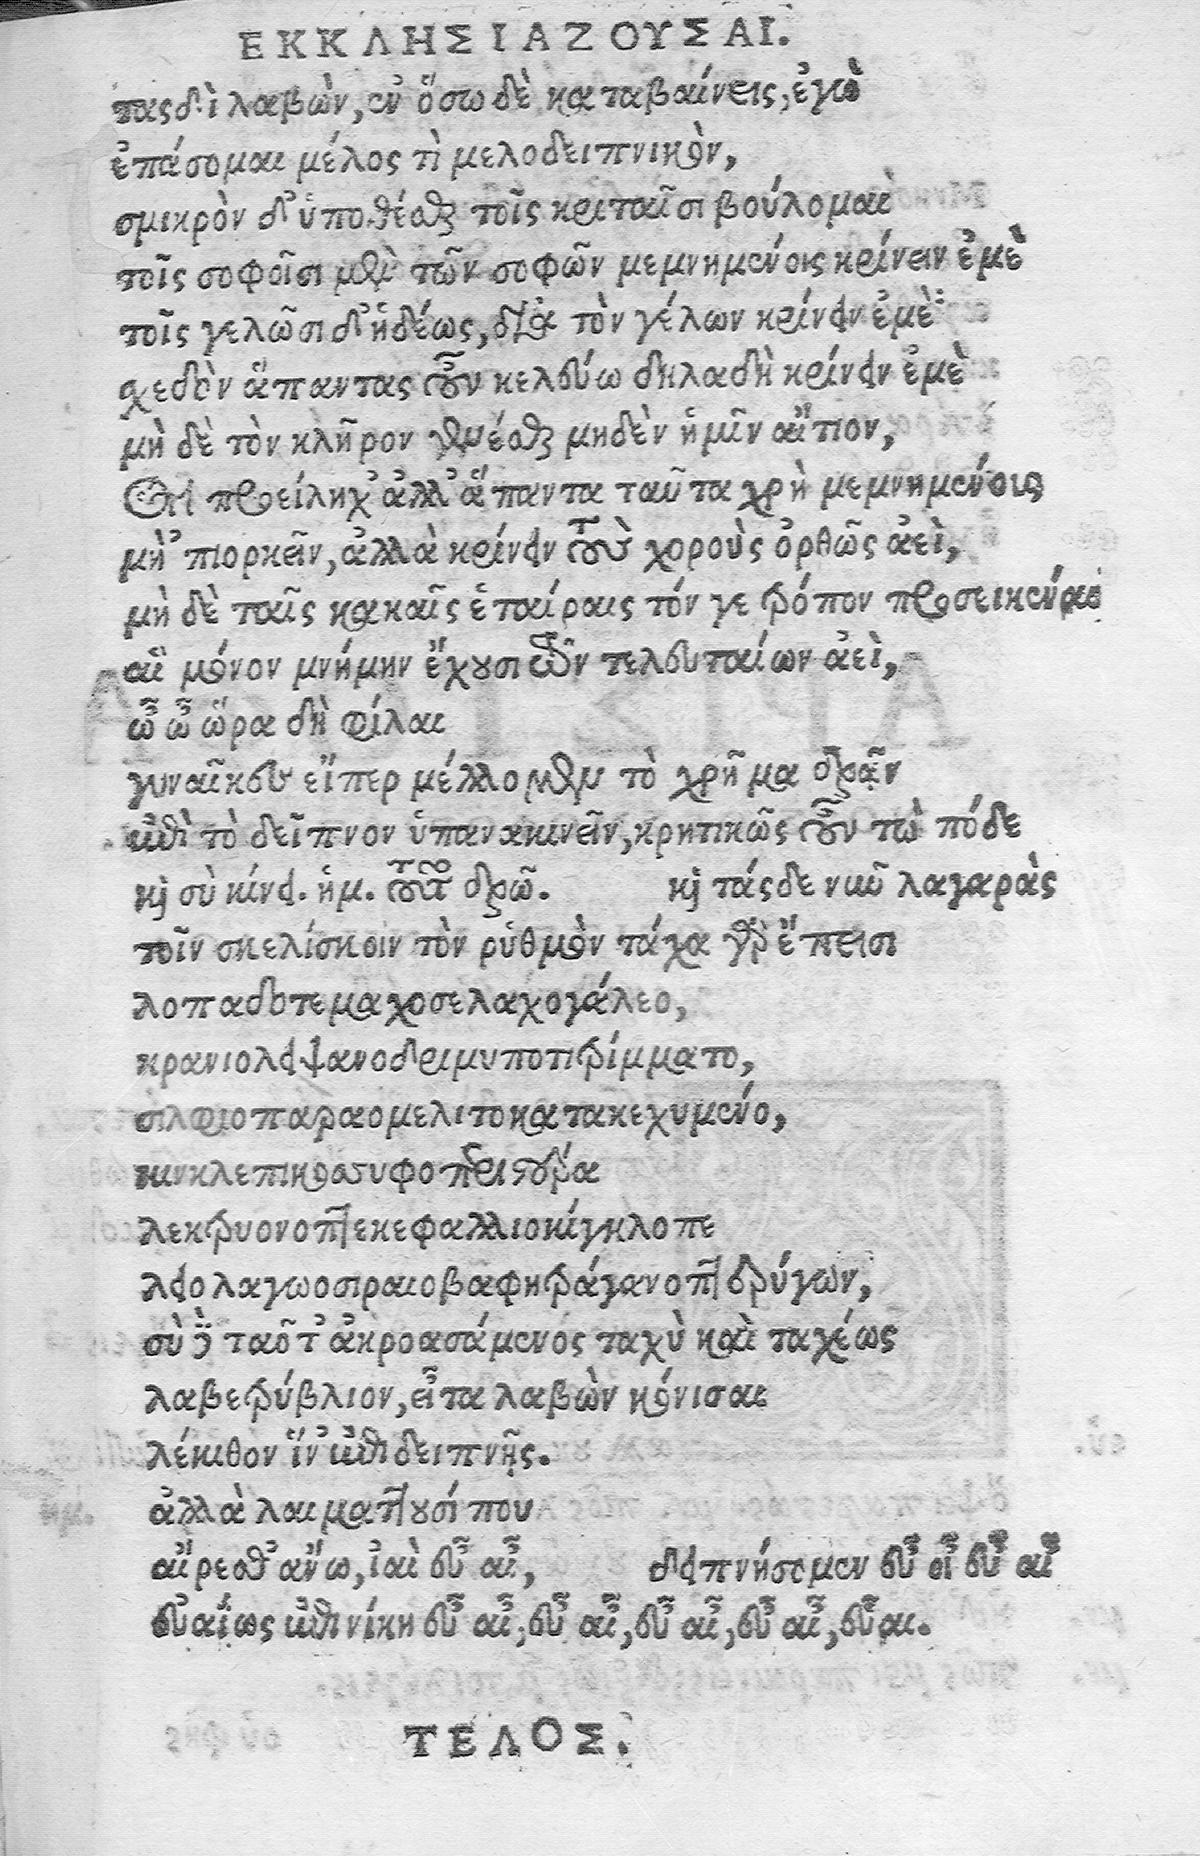 ΕΚΚΛΗΣΙΑΖΟΥΣΑΙ.
τασδὶ λαβὼν, ἐν ὅσω δὲ καταβαίνεις, ἐγὼ
ἐπάσομαι μέλος τὶ μελοδειπνικὸν,
σμικρὸν δ' ὑποθέσθαι τοῖς κριταῖσι βούλομαι
τοῖς σοφοῖσι μὲν τῶν σοφῶν μεμνημένοις κρίνειν ἐμὲ
τοῖς γελῶσι δ' ἡδέως, διὰ τὸν γέλων κρίνειν ἐμὲ
σχεδὸν ἅπαντας οὖν κελεύω δηλαδὴ κρίνειν ἐμὲ
μὴ δὲ τὸν κλῆρον γενέσθαι μηδὲν ἡμῖν αἴτιον,
ὅτι προείληχ' ἀλλ' ἅπαντα ταῦτα χρὴ μεμνημένοις
μὴ 'πιορκεῖν, ἀλλὰ κρίνειν τοὺς χοροὺς ὀρθῶς ἀεὶ,
μὴ δὲ ταῖς κακαῖς ἑταίραις τόν γε τρόπον προσεικέναι
αἳ μόνον μνήμην ἔχουσι τῶν τελευταίων ἀεὶ,
ὦ ὦ ὥρα δὴ φίλαι
γυναῖκες εἴπερ μέλλομεν τὸ χρῆμα δρᾷν
ἐπὶ τὸ δεῖπνον ὑπανακινεῖν, κρητικῶς οὖν τὼ πόδε
καὶ σὺ κίνει. ἡμ. τοῦτο δρῶ. καὶ τάσδε νῦ λαγαρὰς
τοῖν σκελίσκοιν τὸν ῥύθμὸν τάχα γὰρ ἔπεισι
λοπαδοτεμαχοσελαχογάλεο,
κρανιολειψανοδριμυποτιτρίμματο,
σιλφιοπαραομελιτοκατακεχυμένο,
κινκλεπικοσυφοπεριστερα
λεκτρυονοπτεκεφαλλιοκίγκλοπε
λειολαγωοσιραιοβαφητράγανοπτερύγων,
σὺ δὲ ταῦτ' ἀκροασάμενός ταχὺ καὶ ταχέως
λαβε τρύβλιον, εἶτα λαβὼν κόνισαι
λέκιθον ἵν' ἐπιδειπνῇς.
ἀλλὰ λαιματτουσί που
αἴρεσθ' ἄνω, ἰαὶ εὖ αἶ, δειπνήσομεν εὖ οἶ εὖ αἶ
εὐαίως ἐπὶ νίκη εὖ αἶ, εὖ αἶ, εὖ αἶ, εὖ αἶ, εὖαι.
ΤΕΛΟΣ.